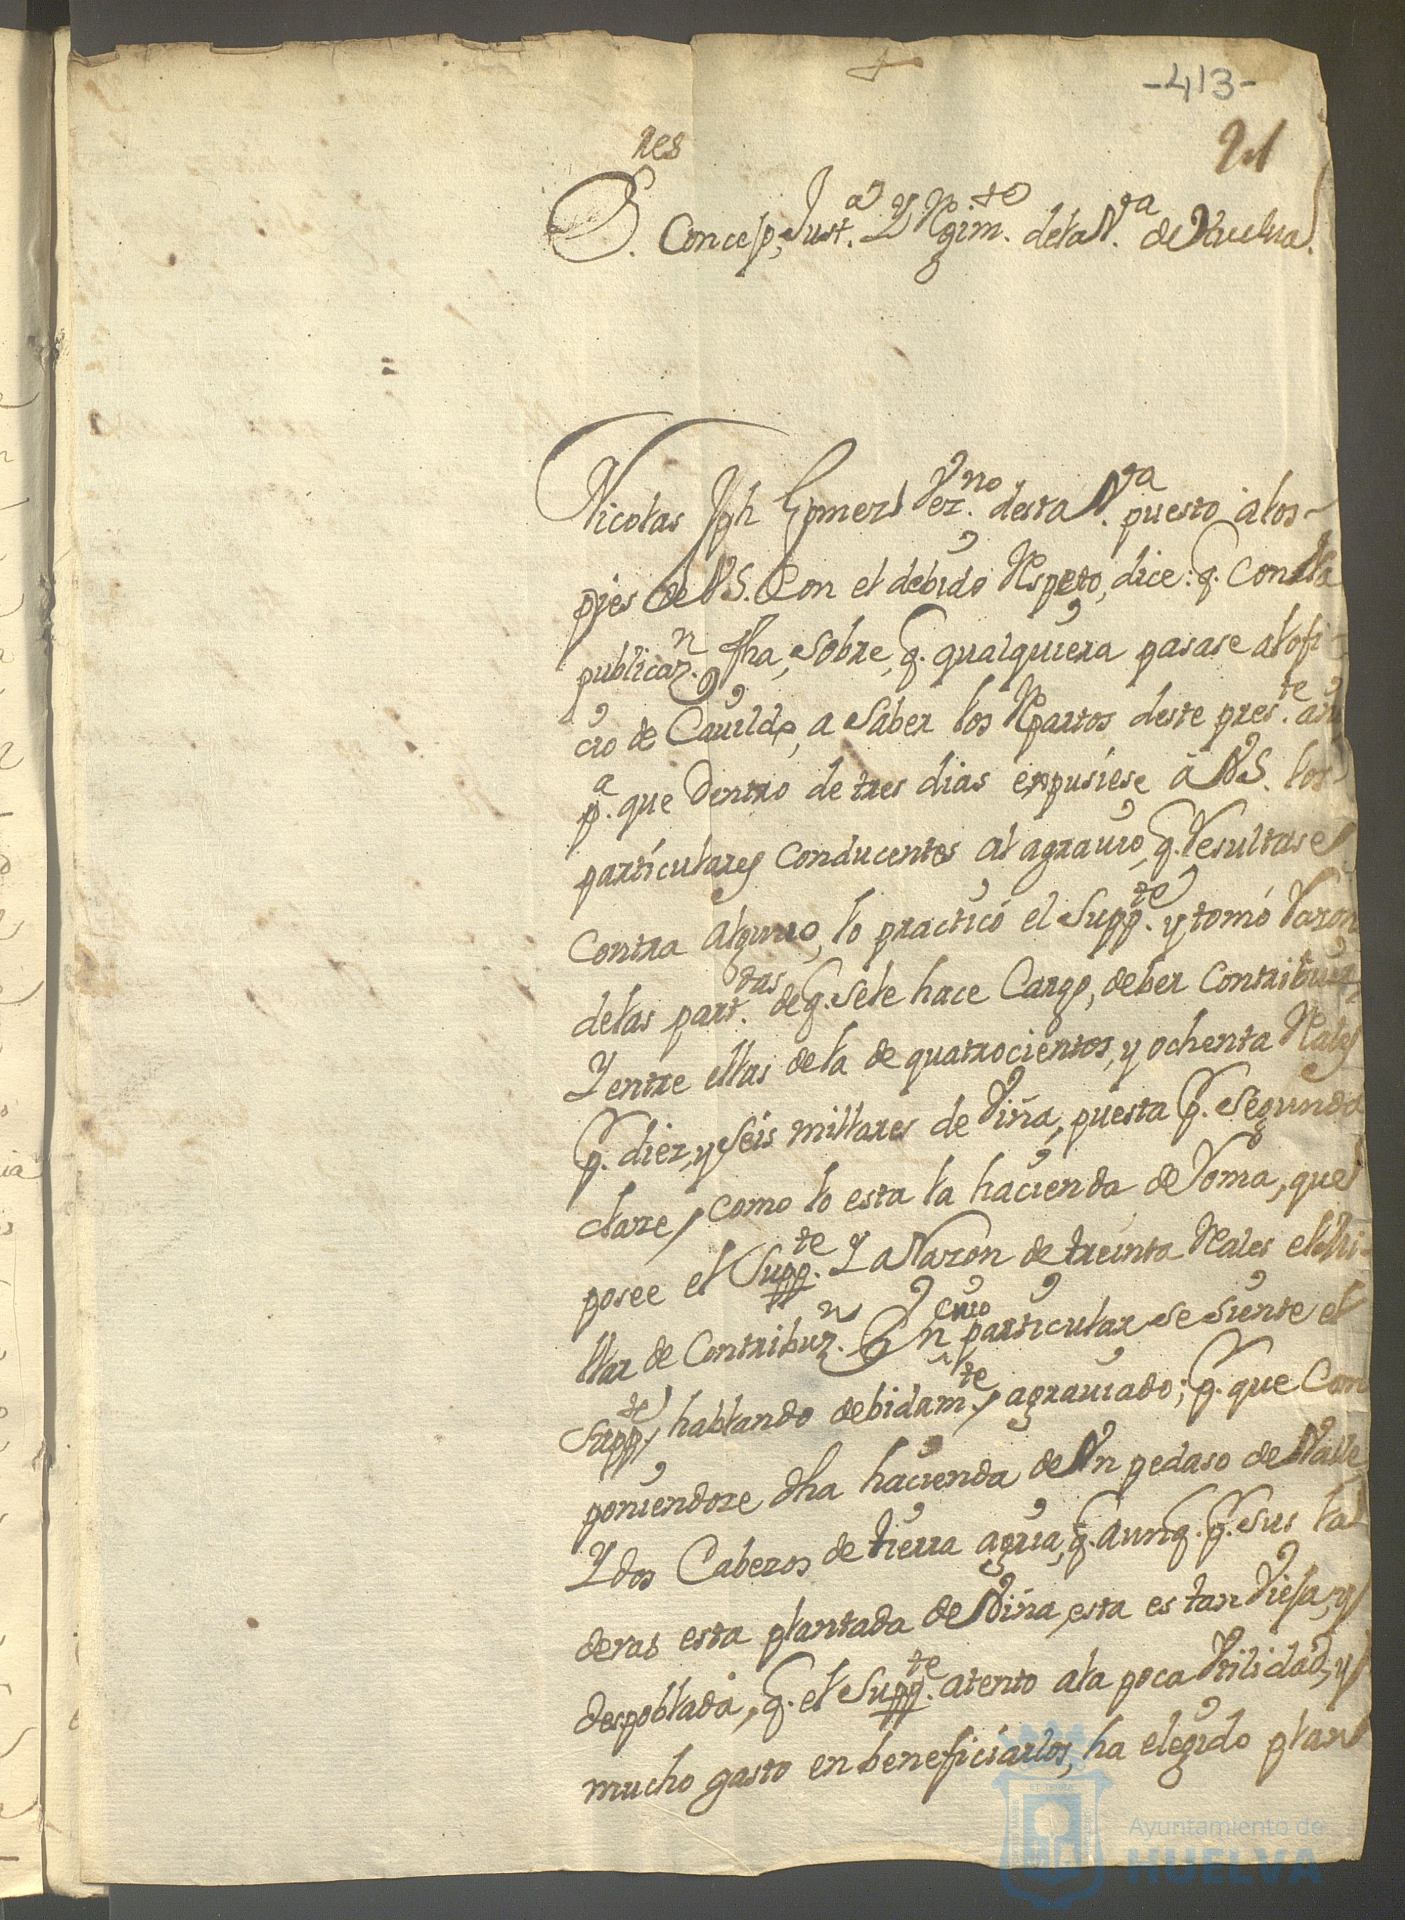 -413-
21
S.res Concejo, Just.a Y Regim.to de la V.a de Huelva.
Nicolas Jph Gomez Vez.no desta V.a puesto a los
pies de V.S. Con el debido Respeto, dice: q. Con la
publicaz.n fha, sobre, q. qualquiera pasase al ofi-
cio de Cauildo, a saber los Repartos deste pres.te año
p.a que Dentro de tres dias expusiese à V.S. los
particulares Conducentes al agrauio, q. Resultase
Contra alguno, lo practicó el Supp.te y tomó razon
de las part.das de q. se le hace Cargo, deber Contribuir
Y entre ellas de la de quatrocientos, y ochenta Reales
p. diez, y seis millares de Viña, puesta p. Segunda
clase, como lo esta la hacienda de Roma, que
posee el Supp.te Y a Razon de treinta Reales el mi-
llar de Contribuz.n En cuio particular se siente el
Supp.te, hablando debidam.te, agrauiado; p. que Com
poniendose dha hacienda de Vn pedaso de Valle
Y dos Cabezos de tierra agria, q. aunq. p. sus la
deras esta plantada de Viña, esta es tan Vieja, y
despoblada, q. el Supp.te atento a la poca Vtilidad, y
mucho gasto en beneficiarlos, ha elegido plan
Ayuntamiento de
HUELVA